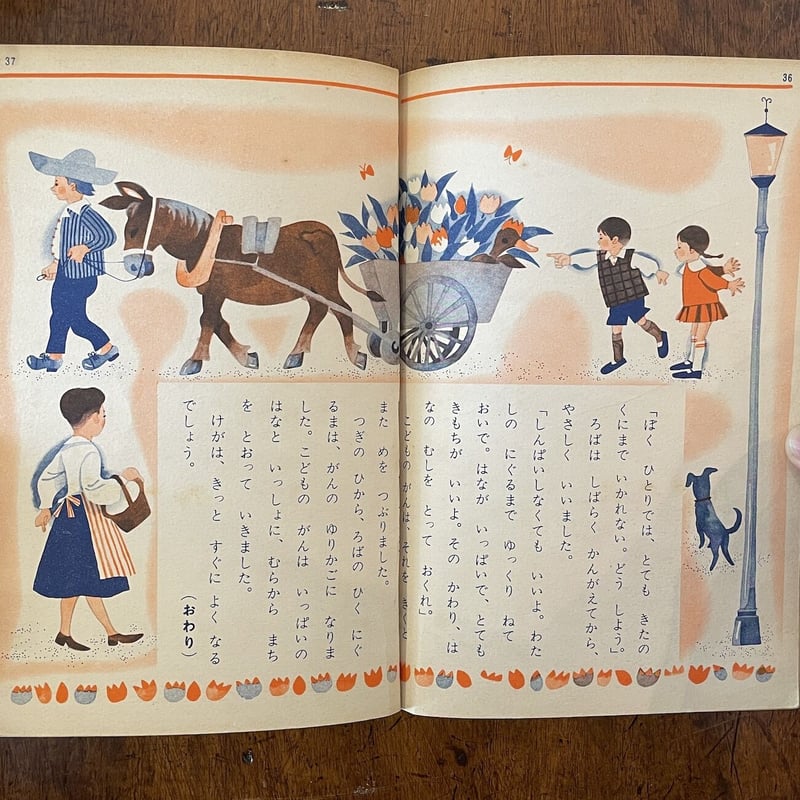 36
「ぼく ひとりでは、とても きたの
くにまで いかれない。どう しよう。」
ろばは しばらく かんがえてから、
やさしく いいました。
「しんぱいしなくても いいよ。わた
しの にぐるまで ゆっくり ねて
おいで。はなが いっぱいで、とても
きもちが いいよ。その かわり、は
なの むしを とって おくれ」
こどもの がんは、それを きくと
また めを つぶりました。
つぎの ひから、ろばの ひく にぐ
るまは、がんの ゆりかごに なりま
した。こどもの がんは いっぱいの
はなと いっしょに、むらから まち
を とおって いきました。
けがは、きっと すぐに よく なる
でしょう。
(おわり)
37